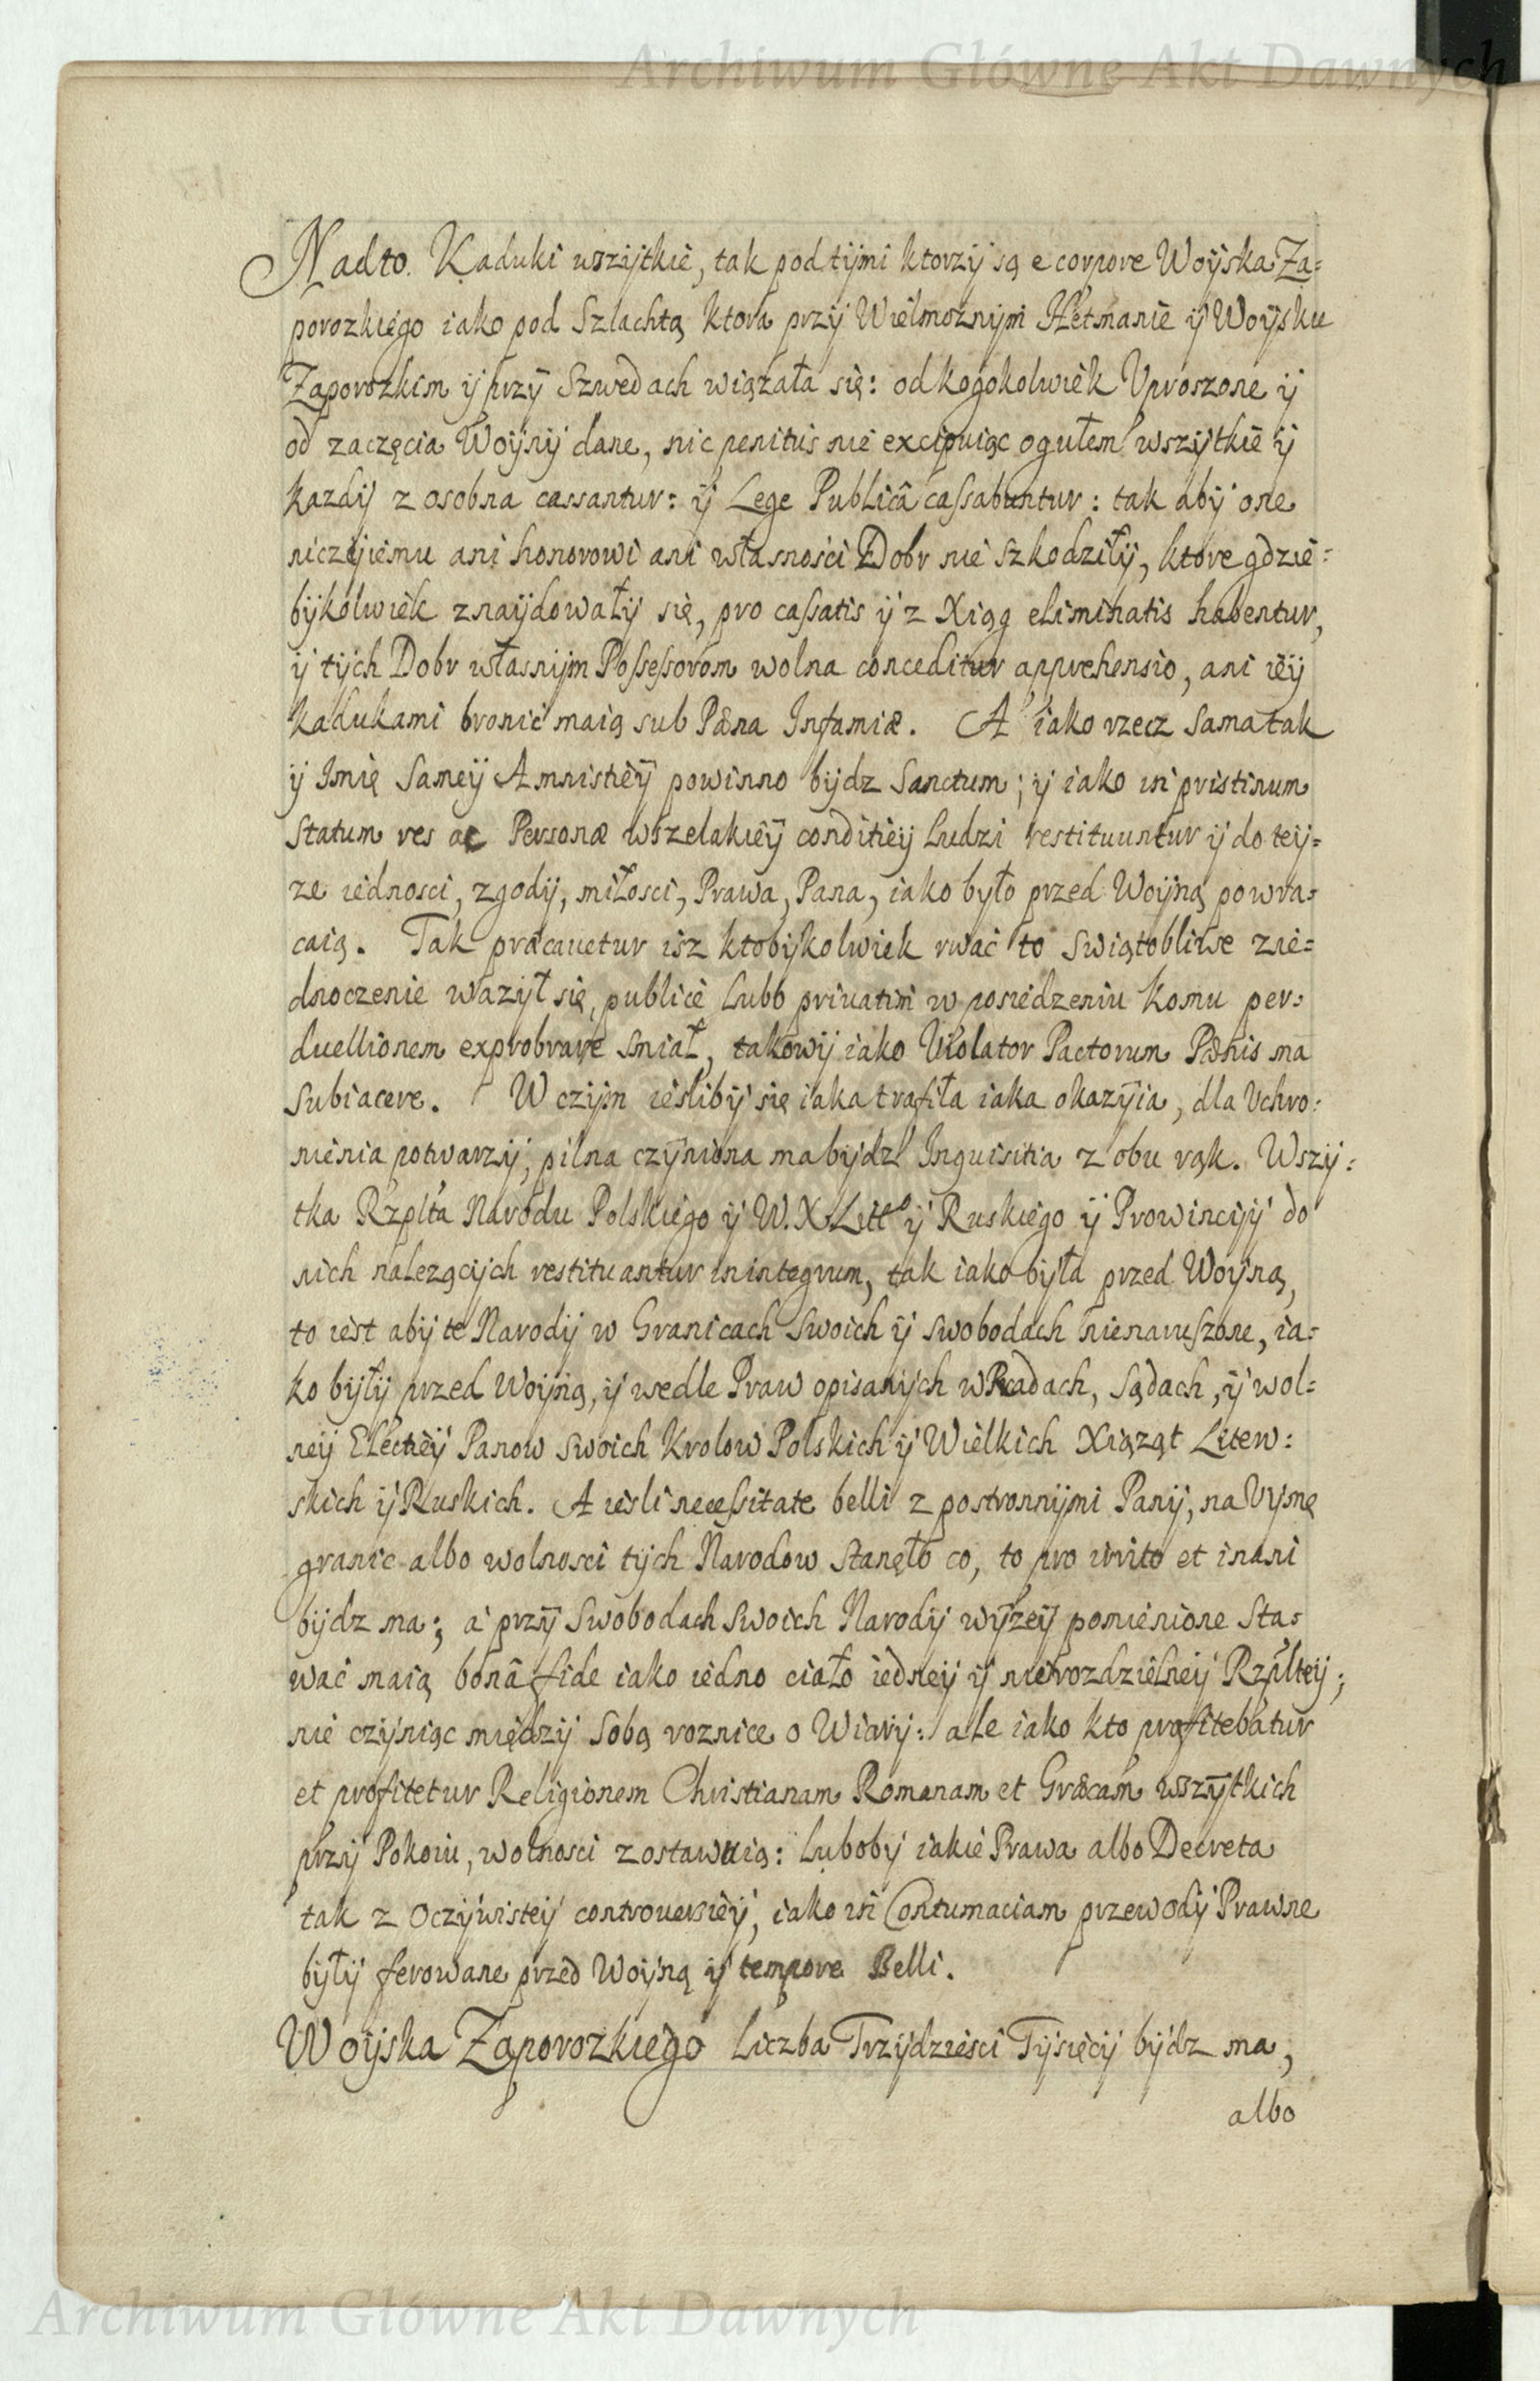 Archiwum Główne Akt Dawnych
Nadto. Kaduki wszijtkie, tak pod tijmi ktorzij są e corpore Woijska Za=
porozkiego iako pod Szlachtą ktora przij Wielmożnijm Hetmanie ij Woijsku
Zaporozkim ij przij Szwedach wiązała się: od kogokolwiek Uproszone ij
od zaczęcia Woijnij dane, nic penitus nie excipuiąc ogułem wszijtkie ij
kazdij z osobna cassantur: ij Lege Publicâ cassabuntur: tak abij one
niczijiemu ani honorowi ani własności Dobr nie szkodziłij, ktore gdzie=
bijkolwiek znaijdowałij się, pro cassatis ij z Xiąg eliminatis habentur,
ij tijch Dobr własnijm Possessorom wolna conceditur apprehensio, ani ieij
kadukami bronić maią sub Pæna Infamiæ. A iako rzecz sama tak
ij Imię sameij Amnistieij powinno bijdz Sanctum; ij iako in pristinum
statum res ac Personæ wszelakieij conditieij ludzi restituuntur ij do teij=
ze iedności, zgodij, miłości, Prawa, Pana, iako było przed Woijną powra=
caią. Tak præcauetur isz ktobijkolwiek rwać to swiątobliwe zie=
dnoczenie ważijł się, publicè lubb priuatim w posiedzeniu komu per=
duellionem exprobrare smiał, takowij iako Violator Pactorum Pænis ma
subiacere. W czijm iesliby się iaka trafiła iaka okazijia, dla Uchro=
nienia potwarzij, pilna czijniona ma bijdz Inquisitia z obu rąk. Wszij=
tka Rzplta Narodu Polskiego ij W. X. Litto ij Ruskiego ij Prowincijj do
nich nalezącijch restituantur in integrum, tak iako bijła przed Woijną,
to iest abij te Narodij w Granicach swoich ij swobodach nienaruszone, ia=
ko bijłij przed Woijną, ij wedle Praw opisanijch w Radach, Sądach, ij wol=
neij Electieij Panow swoich Krolow Polskich ij Wielkich Xiążąt Litew=
skich ij Ruskich. A iesli necessitate belli z postronnijmi Panij, na Uijmę
granic albo wolnosci tijch Narodow stanęło co, to pro irrito et inani
bijdz ma; a przij swobodach swoich Narodij wijżeij pomienione sta=
wać maią bonâ fide iako iedno ciało iedneij ij nierozdzielneij Rzplteij;
nie czijniąc międzij sobą roznice o Wiarij: ale iako kto profitebatur
et profitetur Religionem Christianam Romanam et Græcam wszijtkich
przij Pokoiu, wolnosci zostawuią: lubobij iakie Prawa albo Decreta
tak z Oczijwisteij controuersieij, iako in Contumaciam przewodij Prawne
bijłij ferowane przed Woijną ij tempore Belli.
Woijska Zaporozkiego liczba Trzijdziesci Tijsięcij bijdz ma,
albo
Archiwum Główne Akt Dawnych